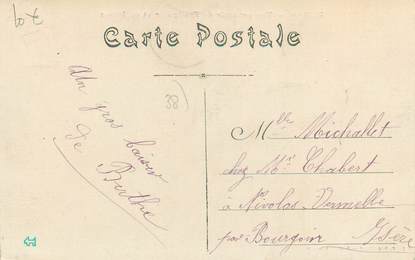 Carte Postale
38
Un gros baiser
de
Berthe
Mlle Michallet
chez Mr Chabert
à Nivolas-Vermelle
par Bourgoin Isère